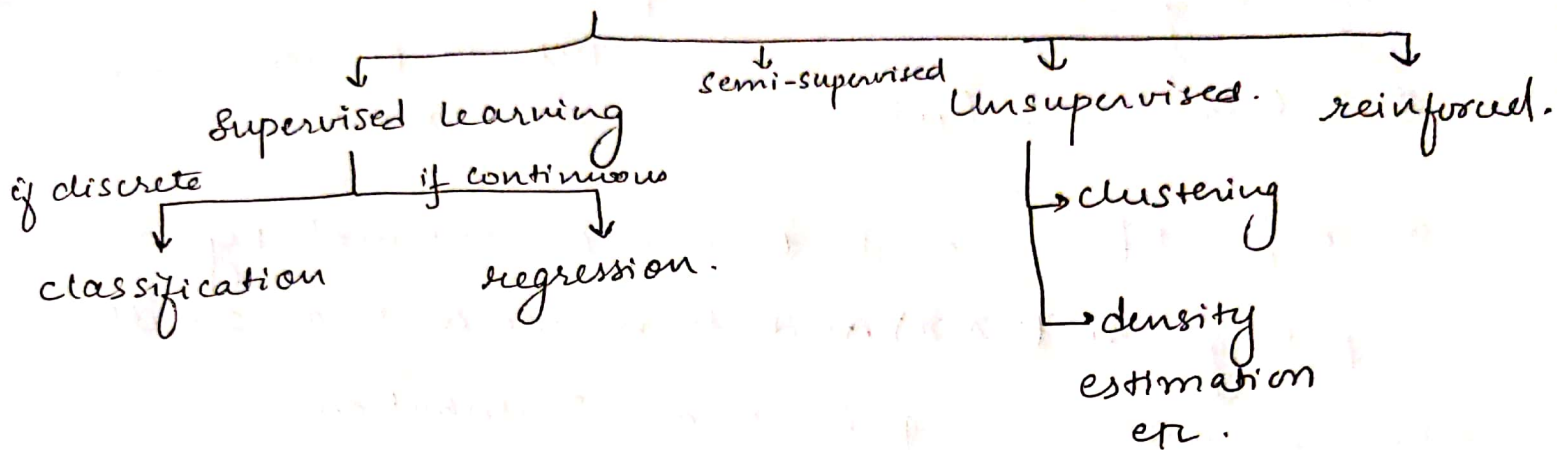 Supervised Learning
semi-supervised
Unsupervised.
reinforced.
if discrete
if continuous
classification
regression.
clustering
density
estimation
etc.